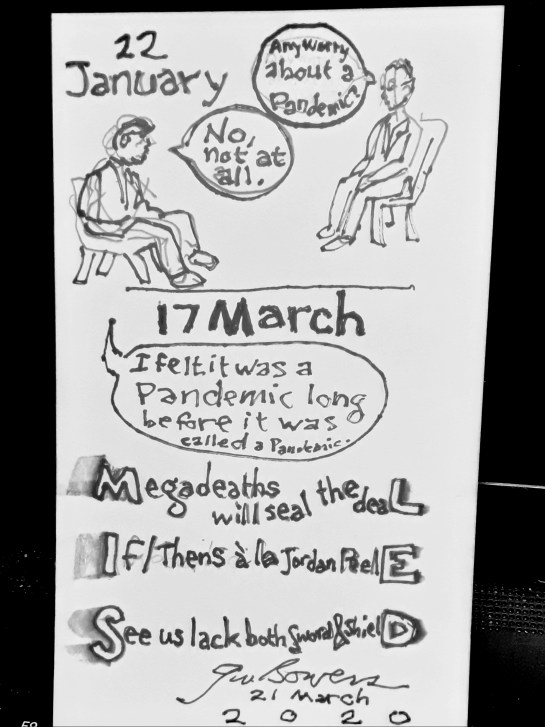 22
January
Any Worry
about a
Pandemic.
No,
not at
all.
17 March
I felt it was a
Pandemic long
before it was
called a Pandemic.
Megadeaths
will seal the deaL
If/Thens à la Jordan PeelE
See us lack both sword & shielD
Jim Bowers
21 March
2020
59